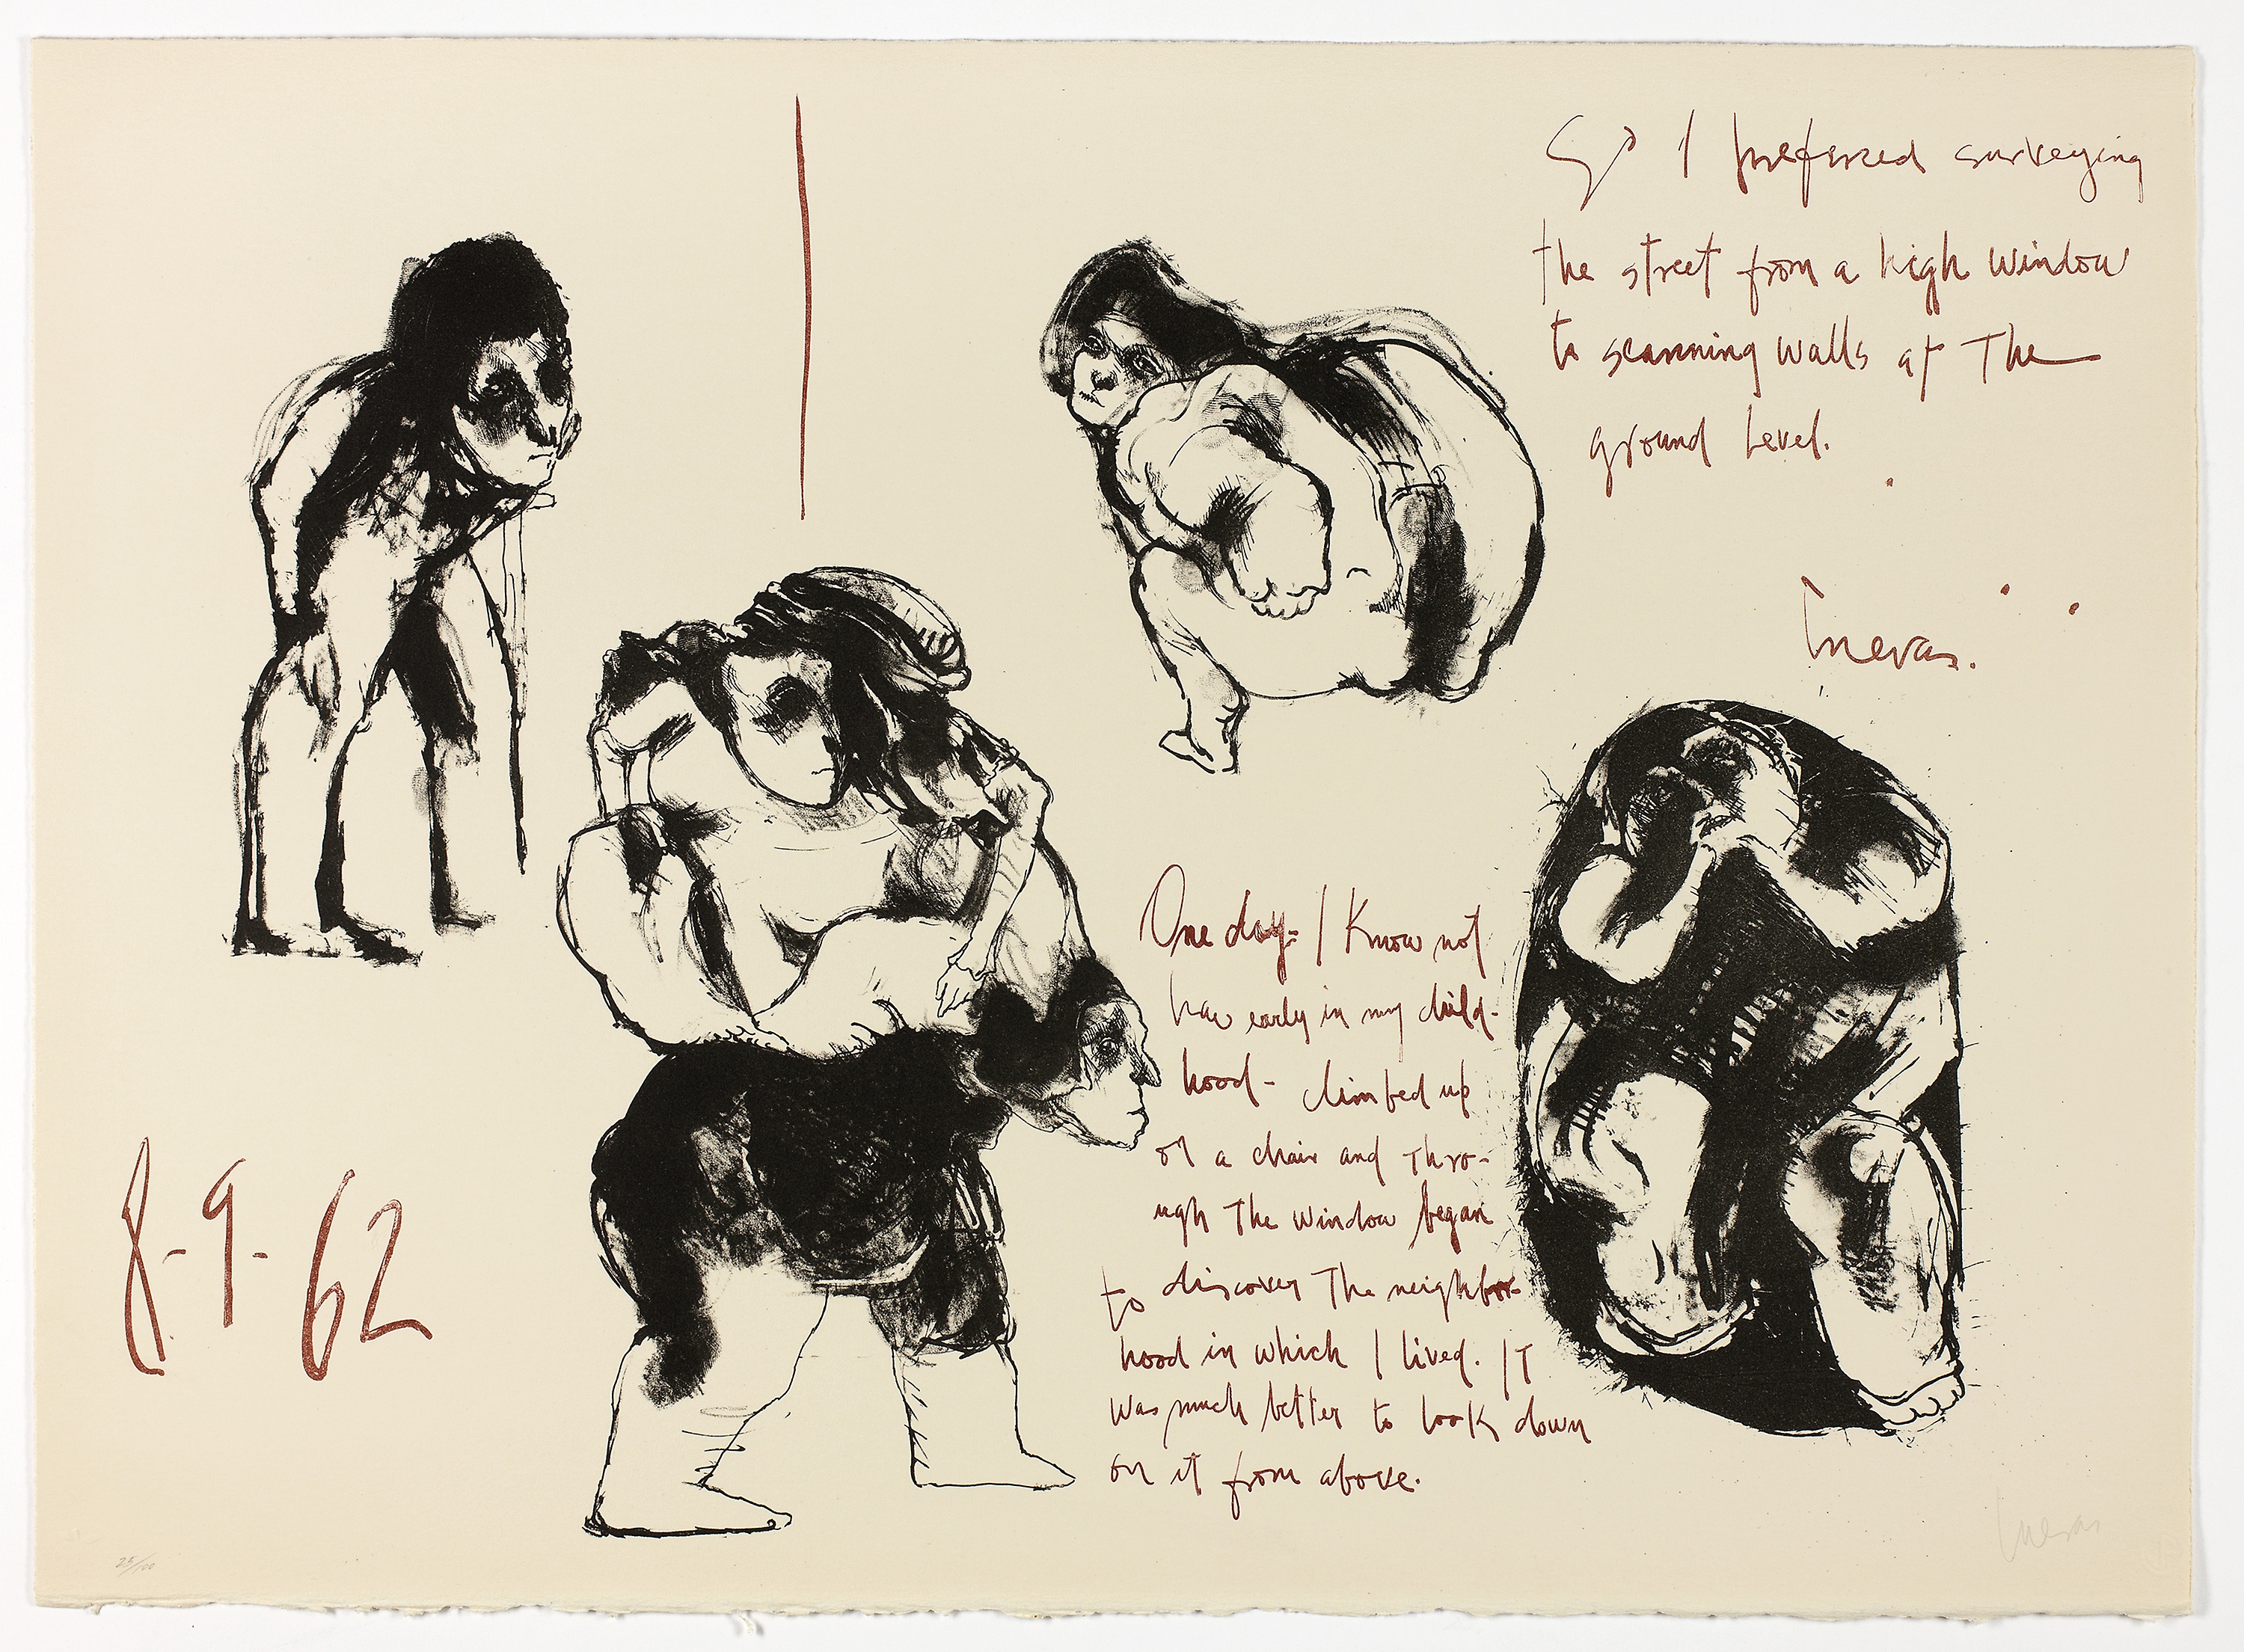 So I preferred surveying
the street from a high window
to scanning walls at The
ground Level.
Cuevas.
One day - I Know not
how early in my child-
hood - climbed up
on a chair and thro-
ugh The window began
to discover The neighbor-
hood in which I lived. IT
was much better to look down
on it from above.
8-9-62
25/100
Cuevas